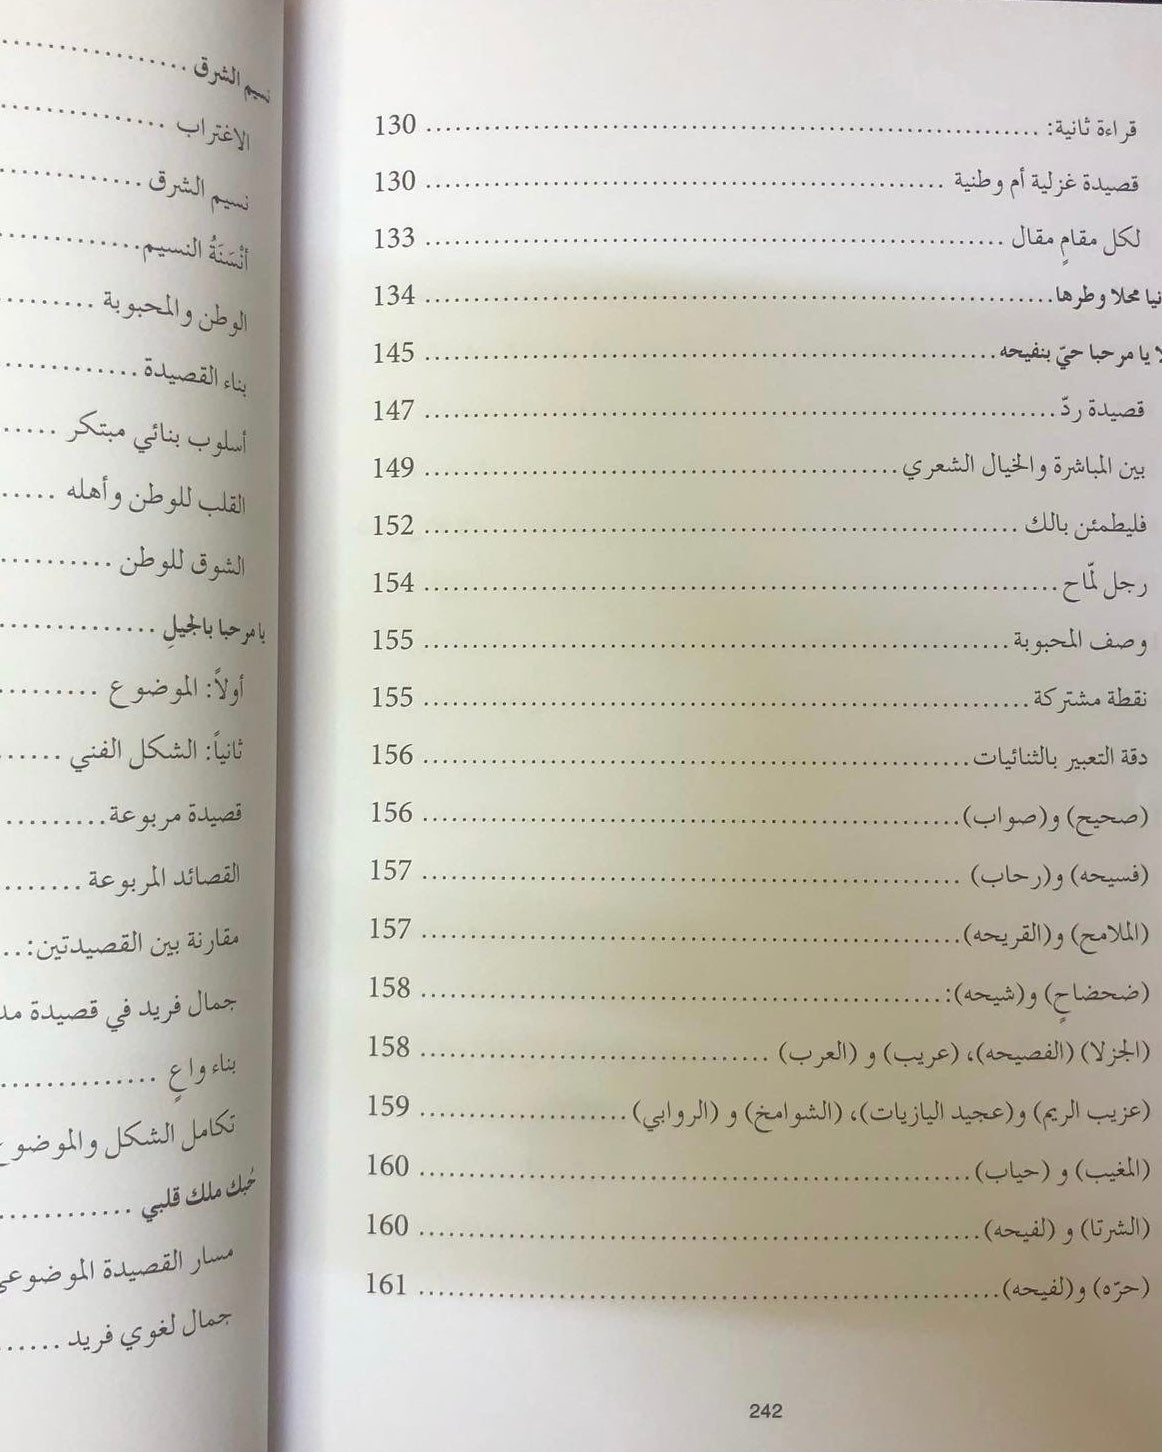 قراءة ثانية: ........ 130
قصيدة غزلية أم وطنية ........ 130
لكل مقامٍ مقال ........ 133
محلا وطرها ........ 134
يا مرحبا حيّ بنفيحه ........ 145
قصيدة ردّ ........ 147
بين المباشرة والخيال الشعري ........ 149
فليطمئن بالك ........ 152
رجل لمّاح ........ 154
وصف المحبوبة ........ 155
نقطة مشتركة ........ 155
دقة التعبير بالثنائيات ........ 156
(صحيح) و(صواب) ........ 156
(فسيحه) و(رحاب) ........ 157
(الملامح) و(القريحه) ........ 157
(ضحضاحٍ) و(شيحه): ........ 158
(الجزلا) (الفصيحه)، (عريب) و (العرب) ........ 158
(عزيب الريم) و(عجيد اليازيات)، (الشوامخ) و (الروابي) ........ 159
(المغيب) و (حياب) ........ 160
(الشرتا) و (لفيحه) ........ 160
(حرّه) و(لفيحه) ........ 161
242
نسيم الشرق ........
الاغتراب ........
نسيم الشرق ........
أنْسَنَةُ النسيم ........
الوطن والمحبوبة ........
بناء القصيدة ........
أسلوب بنائي مبتكر ........
القلب للوطن وأهله ........
الشوق للوطن ........
يا مرحبا بالجيلِ ........
أولاً: الموضوع ........
ثانياً: الشكل الفني ........
قصيدة مربوعة ........
القصائد المربوعة ........
مقارنة بين القصيدتين: ...
جمال فريد في قصيدة
بناء واعٍ ........
تكامل الشكل والموضوع
حُبك ملك قلبي ........
مسار القصيدة الموضوعي
جمال لغوي فريد ........